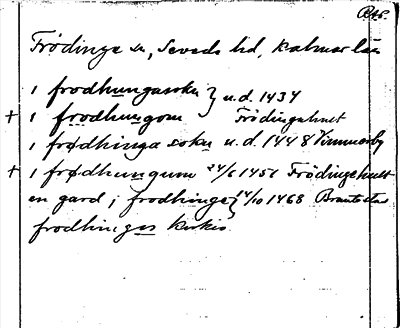 RAp.
Frödinge sn, Sevede hd, Kalmar län
i frodhungasokn } u.d. 1434
+ i frodhungom } Frödingehult
i frødhinga sokn u.d. 1448 Vimmerby
+ i frødhungum 24/6 1451 Frödingehult
en gard i frodhinge } 14/10 1468 Brantestad
frodhinges kirkio }